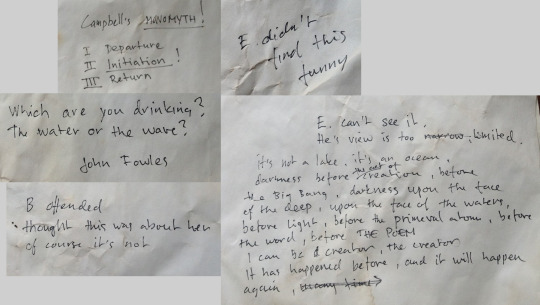 Campbell's MONOMYTH!
I Departure
II Initiation!
III Return
E. didn't
find this
funny
Which are you drinking?
The water or the wave?
John Fowles
B offended
thought this was about her
of course it's not
E. can't see it.
He's view is too narrow, limited.
it's not a lake, it's an ocean,
darkness before the act of creation, before
the Big Bang, darkness upon the face
of the deep, upon the face of the waters,
before light, before the primeval atom, before
the word, before THE POEM
I can be a creator, the creator
It has happened before, and it will happen
again, many times